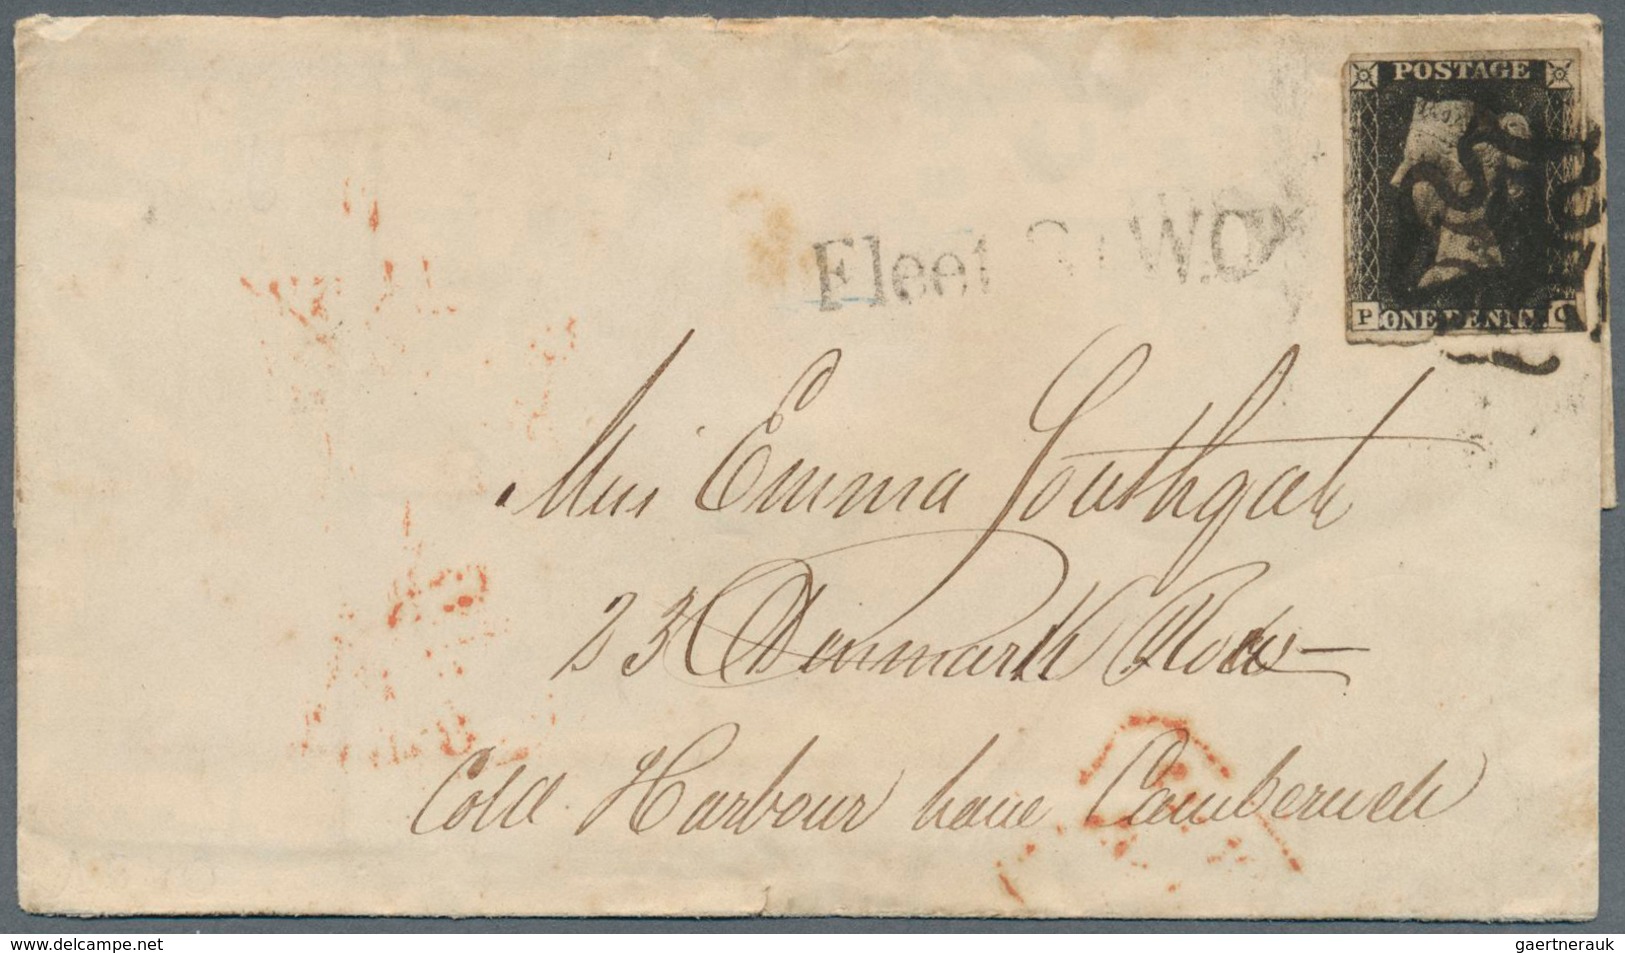 POSTAGE
Fleet St W.O
P ONE PENNY C
Miss Emma Southgate
23 Denmark Row
Cold Harbour Lane Camberwell
www.delcampe.net
gaertnerauk